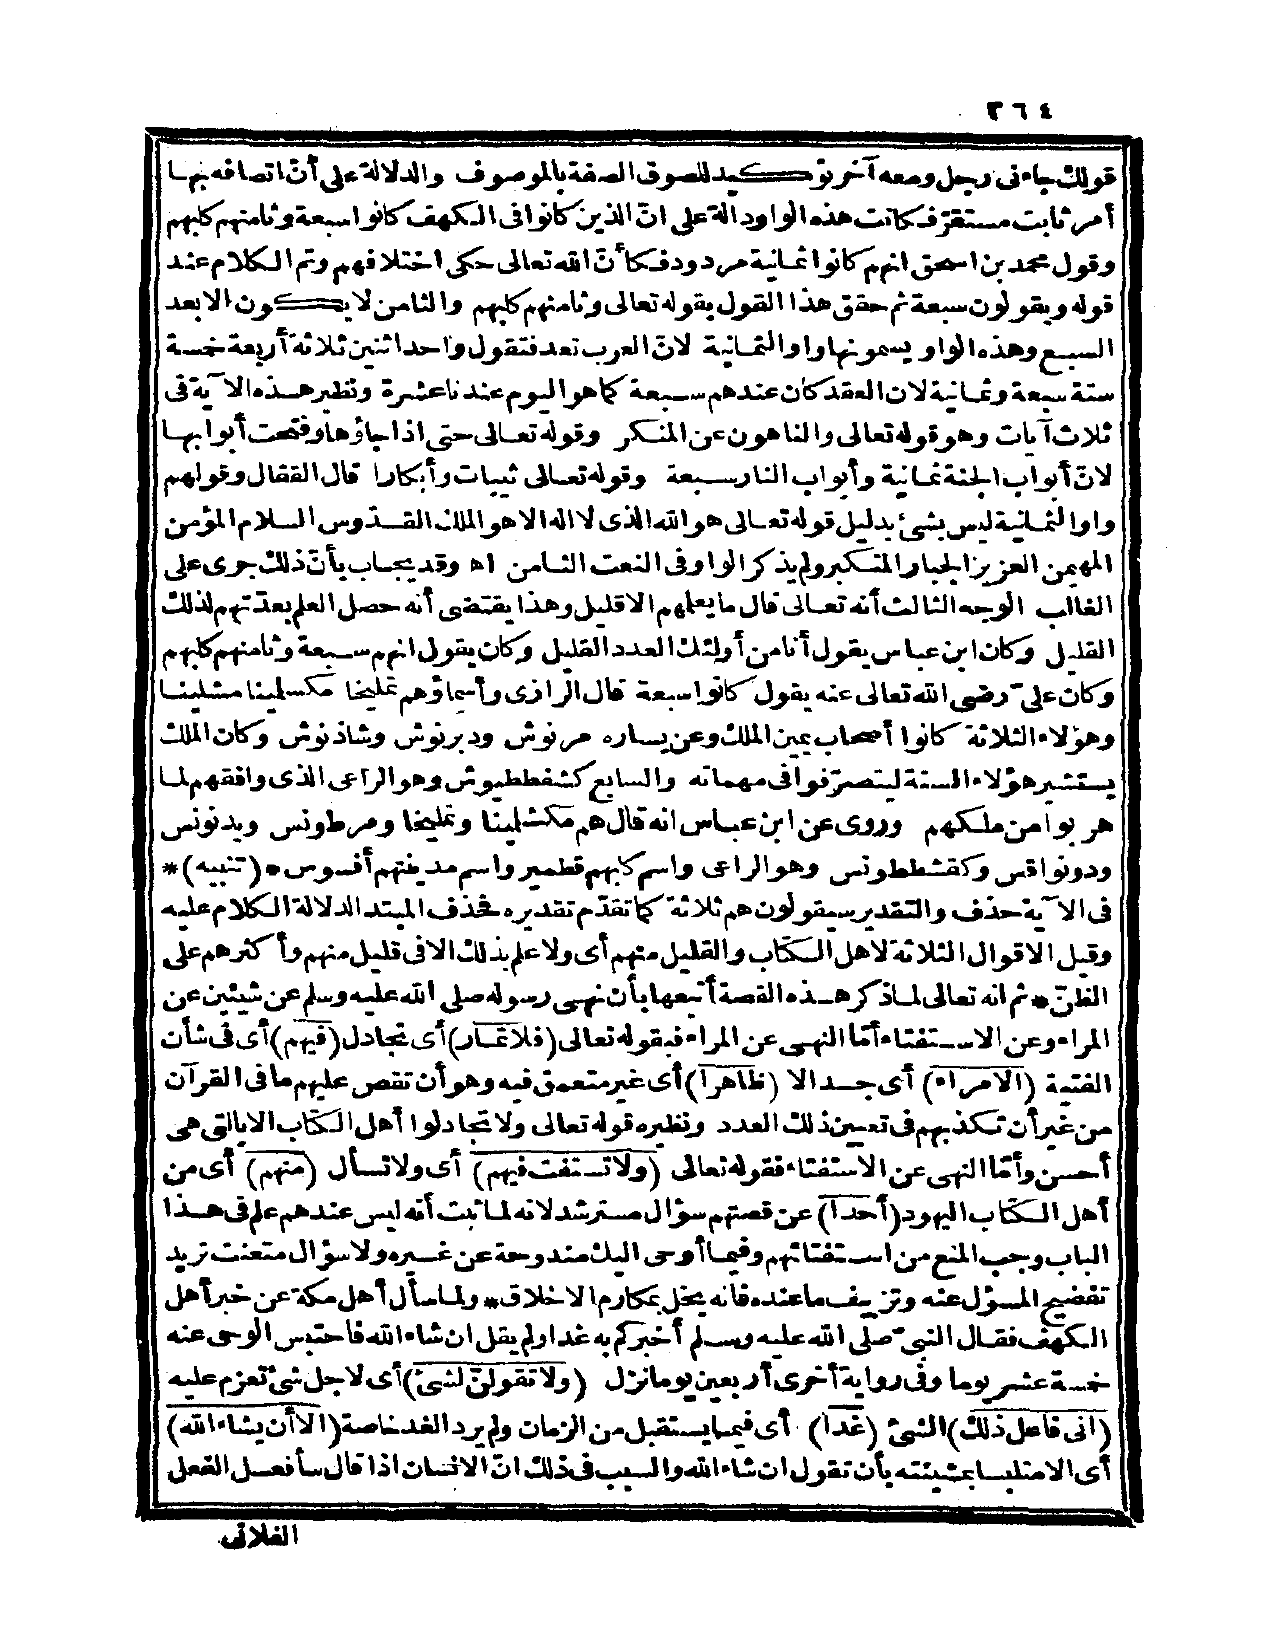 ٣٦٤
قولك جاءنى رجل ومعه آخر توكيد للصوق الصفة بالموصوف والدلالة على أنّ اتصافه بها
أمر ثابت مستقرّ فكانت هذه الواو دالة على انّ الذين كانوا فى الكهف كانوا سبعة وثامنهم كلبهم
وقول محمد بن اسحق انهم كانوا ثمانية مردود فكأنّ الله تعالى حكى اختلافهم وتم الكلام عند
قوله ويقولون سبعة ثم حقق هذا القول بقوله تعالى وثامنهم كلبهم والثامن لا يكون الا بعد
السبع وهذه الواو يسمونها واو الثمانية لانّ العرب تعد فتقول واحد اثنين ثلاثة أربعة خمسة
ستة سبعة وثمانية لان العقد كان عندهم سبعة كما هو اليوم عندنا عشرة ونظير هذه الآية فى
ثلاث آيات وهو قوله تعالى والناهون عن المنكر وقوله تعالى حتى اذا جاؤها وفتحت أبوابها
لانّ أبواب الجنة ثمانية وأبواب النار سبعة وقوله تعالى ثيبات وأبكارا قال القفال وقولهم
واو الثمانية ليس بشئ بدليل قوله تعالى هو الله الذى لا اله الا هو الملك القدّوس السلام المؤمن
المهيمن العزيز الجبار المتكبر ولم يذكر الواو فى النعت الثامن اه وقد يجاب بأنّ ذلك جرى على
الغالب الوجه الثالث أنه تعالى قال ما يعلمهم الا قليل وهذا يقتضى أنه حصل العلم بعدّتهم لذلك
القليل وكان ابن عباس يقول أنا من أولئك العدد القليل وكان يقول انهم سبعة وثامنهم كلبهم
وكان علىّ رضى الله تعالى عنه يقول كانوا سبعة قال الرازى وأسماؤهم تمليخا مكسلينا مشلينا
وهؤلاء الثلاثة كانوا أصحاب يمين الملك وعن يساره مرنوش ودبرنوش وشاذنوش وكان الملك
يستشير هؤلاء الستة ليتصرّفوا فى مهماته والسابع كشفططيوش وهو الراعى الذى وافقهم لما
هربوا من ملكهم وروى عن ابن عباس انه قال هم مكشلينا وتمليخا ومرطونس وبدنونس
ودونواقس وكفشططونس وهو الراعى واسم كلبهم قطمير واسم مدينتهم أفسوس * (تنبيه) *
فى الآية حذف والتقدير سيقولون هم ثلاثة كما تقدّم تقديره فحذف المبتدا لدلالة الكلام عليه
وقيل الاقوال الثلاثة لاهل الكتاب والقليل منهم أى ولا علم بذلك الا فى قليل منهم وأكثرهم على
الظنّ * ثم انه تعالى لما ذكر هذه القصة أتبعها بأن نهى رسوله صلى الله عليه وسلم عن شيئين عن
المراء وعن الاستفتاء أمّا النهى عن المراء فبقوله تعالى (فلا تمار) أى تجادل (فيهم) أى فى شأن
الفتية (الا مراء) أى جدالا (ظاهرا) أى غير متعمق فيه وهو أن تقص عليهم ما فى القرآن
من غير أن تكذبهم فى تعيين ذلك العدد ونظيره قوله تعالى ولا تجادلوا أهل الكتاب الا بالتى هى
أحسن وأمّا النهى عن الاستفتاء فقوله تعالى (ولا تستفت فيهم) أى ولا تسأل (منهم) أى من
أهل الكتاب اليهود (أحدا) عن قصتهم سؤال مسترشد لانه لما ثبت أنه ليس عندهم علم فى هذا
الباب وجب المنع من استفتائهم وفيما أوحى اليك مندوحة عن غيره ولا سؤال متعنت تريد
تفضيح المسؤل عنه وتزييف ما عنده فانه يخل بمكارم الاخلاق * ولما سأل أهل مكة عن خبر أهل
الكهف فقال النبىّ صلى الله عليه وسلم أخبركم به غدا ولم يقل ان شاء الله فاحتبس الوحى عنه
خمسة عشر يوما وفى رواية أخرى أربعين يوما نزل (ولا تقولنّ لشئ) أى لاجل شئ تعزم عليه
(انى فاعل ذلك) الشئ (غدا) أى فيما يستقبل من الزمان ولم يرد الغد خاصة (الا أن يشاء الله)
أى الا متلبسا بمشيئته بأن تقول ان شاء الله والسبب فى ذلك انّ الانسان اذا قال سأفعل الفعل
الفلانى